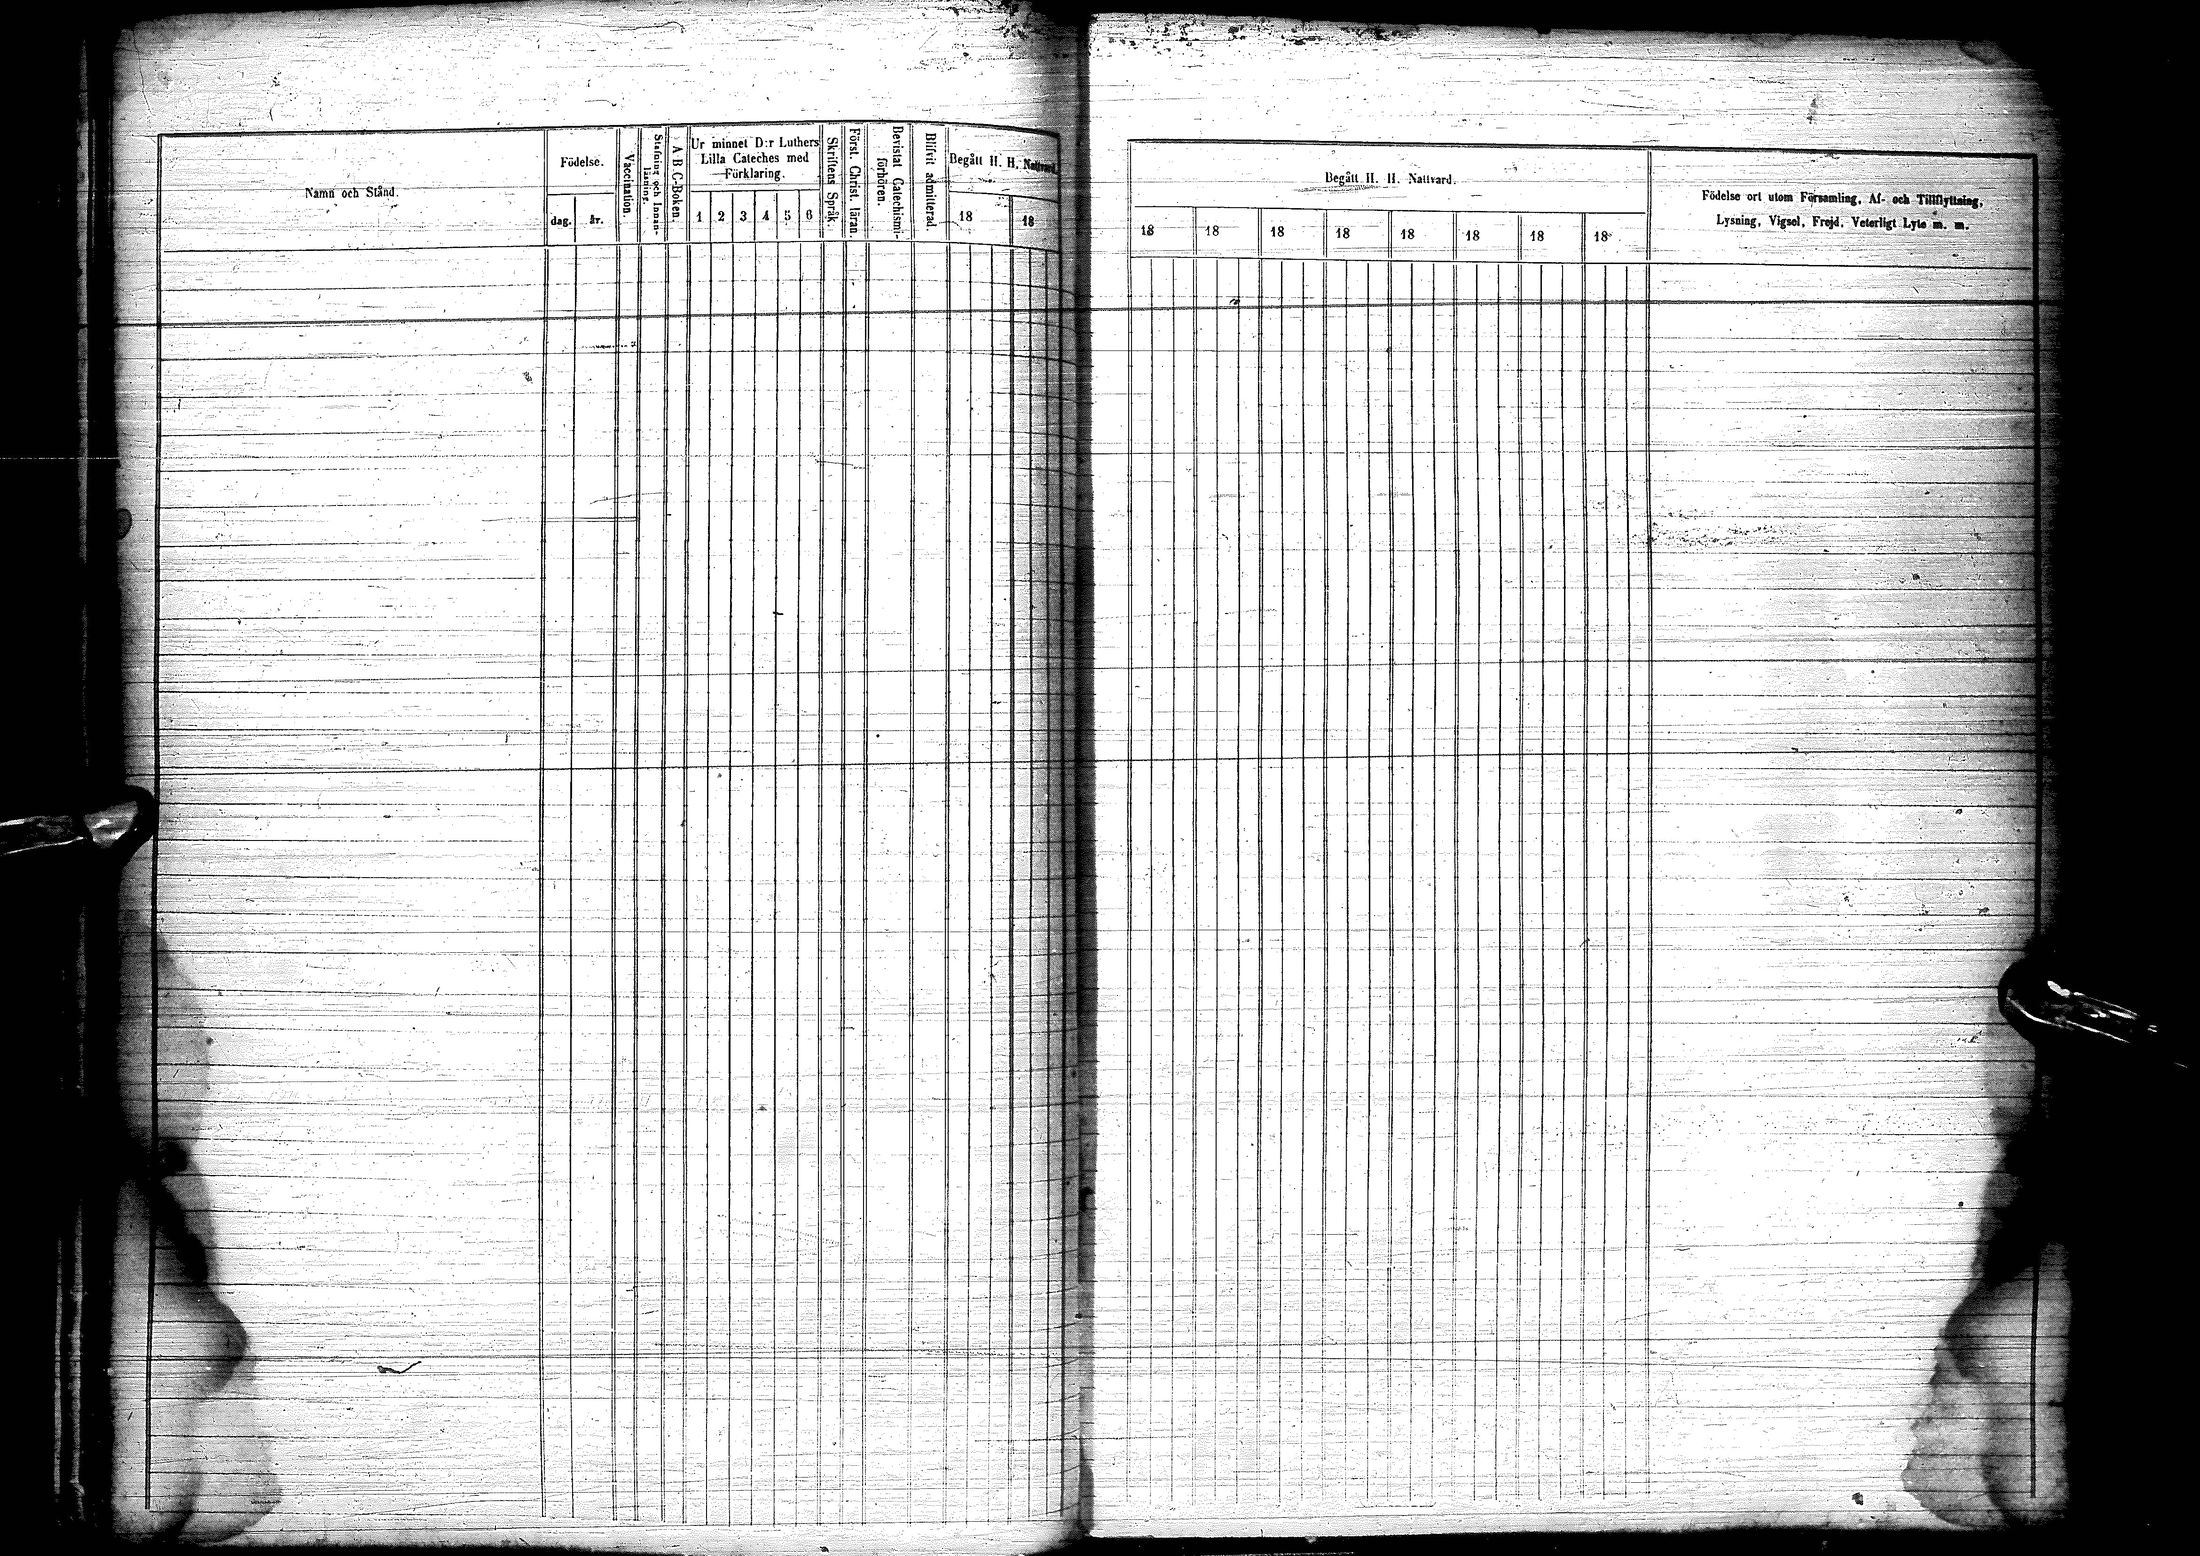 Namn och Stånd.
Födelse.
dag. år.
Vaccination.
Stafning och Innan-
läsning.
A B C-Boken.
Ur minnet D:r Luthers
Lilla Cateches med
Förklaring.
1 2 3 4 5 6
Skriftens Språk.
Först. Christ. läran.
Bevistat Catechismi-
förhören.
Blifvit admitterad.
Begått H. H. Nattvard.
18 18
Begått H. H. Nattvard.
18 18 18 18 18 18 18 18
Födelse ort utom Församling, Af- och Tillflyttning,
Lysning, Vigsel, Frejd, Veterligt Lyte m. m.